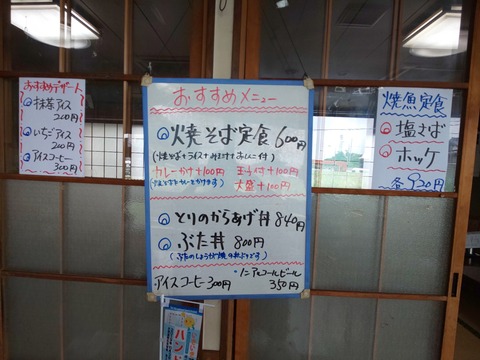 おすすめデザート
抹茶アイス
200円
いちごアイス
200円
アイスコーヒー
300円
おすすめメニュー
焼そば定食 600円
(焼そば+ライス+みそ汁+おしんこ付)
カレーかけ+100円 玉子付+100円
大盛+100円
とりのからあげ丼 840円
ぶた丼 800円
アイスコーヒー 300円
ノンアルコールビール
350円
焼魚定食
塩さば
ホッケ
各920円